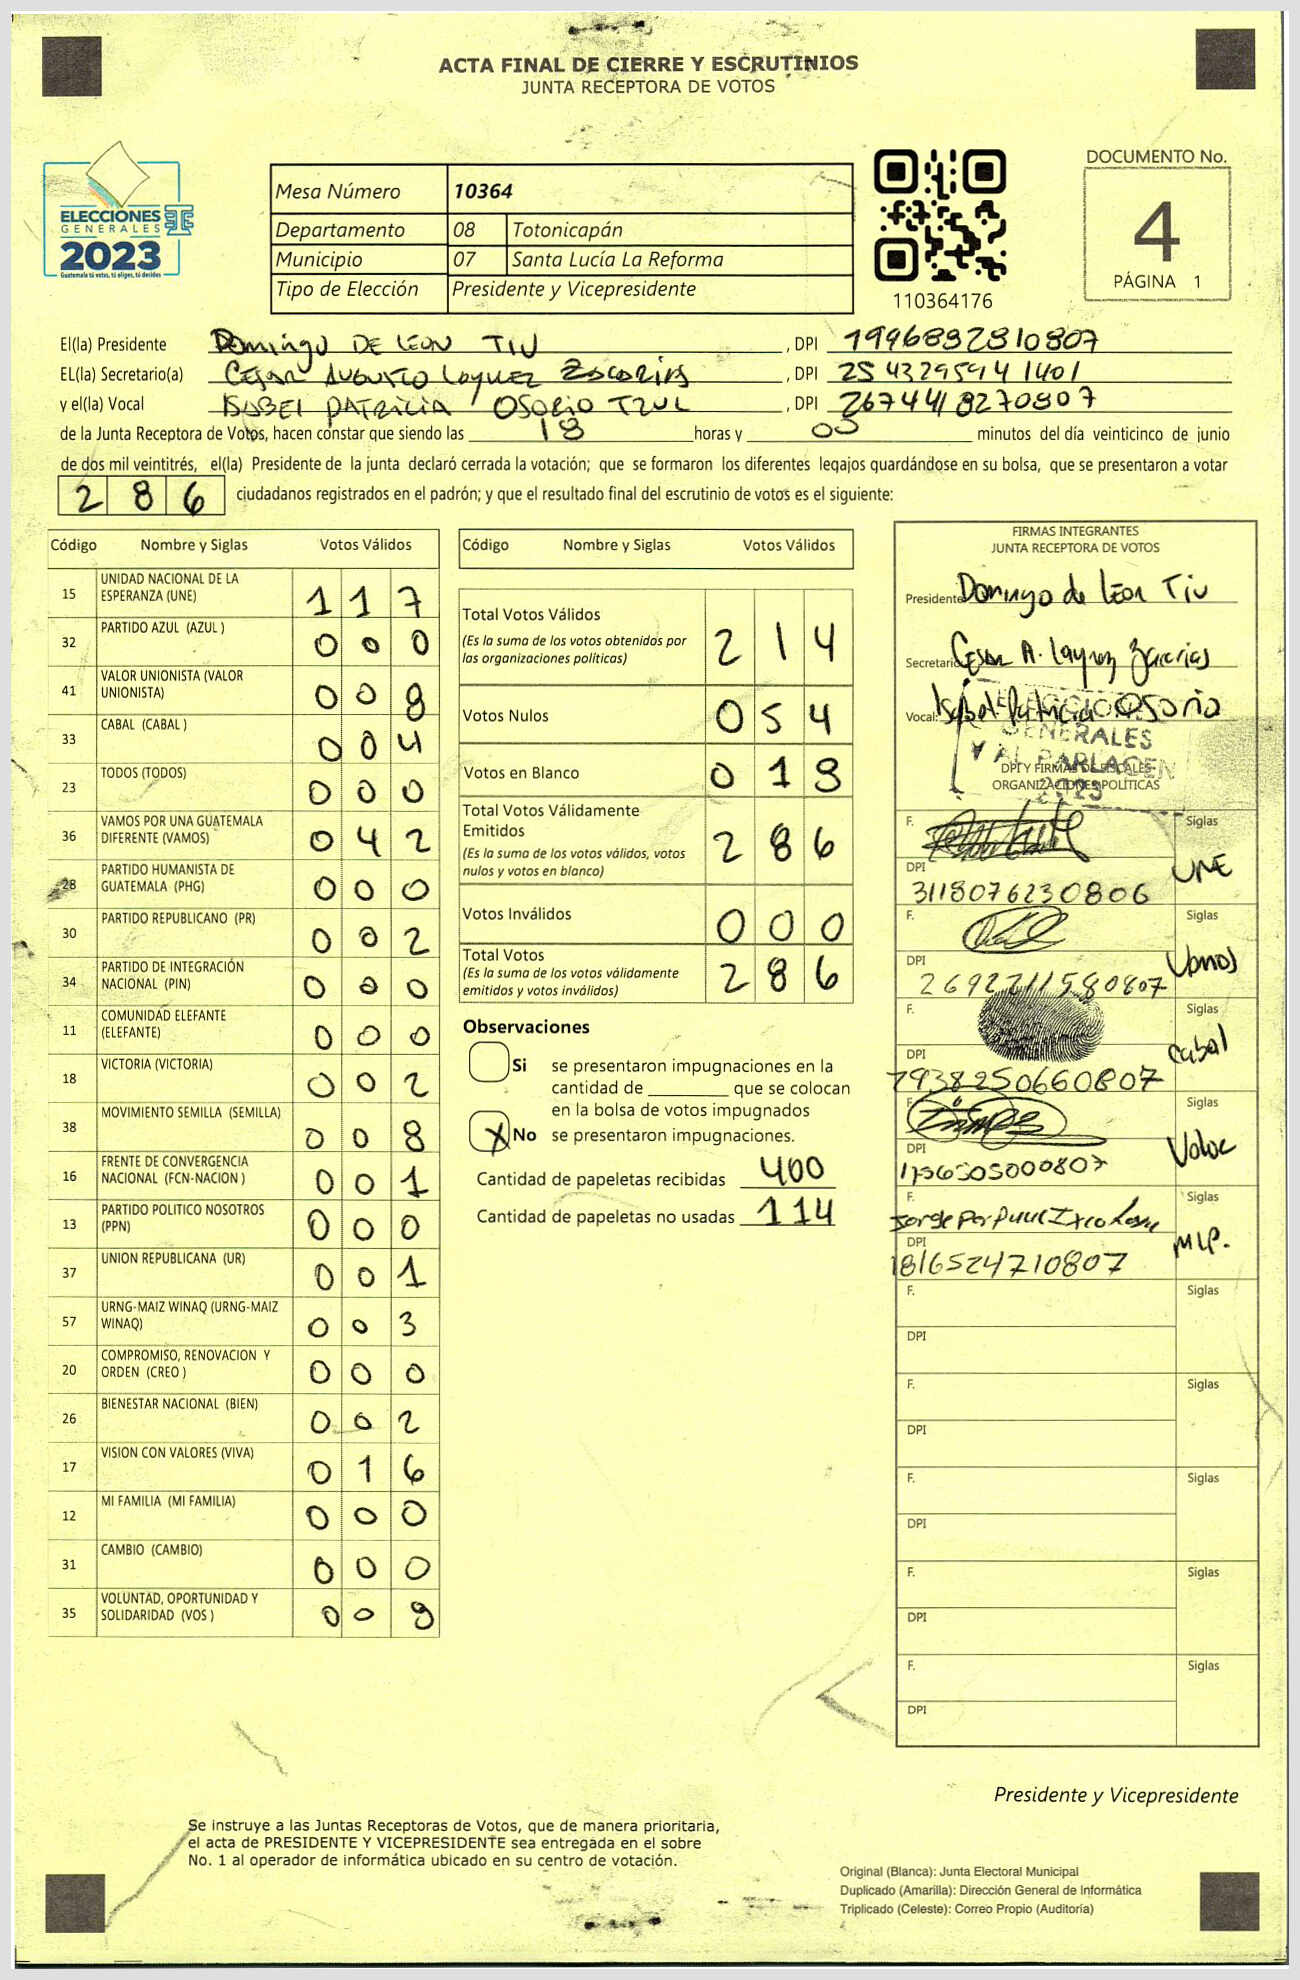 ACTA FINAL DE CIERRE Y ESCRUTINIOS
JUNTA RECEPTORA DE VOTOS
ELECCIONES
GENERALES
2023
Guatemala tú votas, tú eliges, tú decides
Mesa Número 10364
Departamento 08 Totonicapán
Municipio 07 Santa Lucía La Reforma
Tipo de Elección Presidente y Vicepresidente
110364176
DOCUMENTO No.
4
PÁGINA 1
El(la) Presidente Domingo DE LEON TIU , DPI 1996892810807
EL(la) Secretario(a) CESAR AUGUSTO Laynez , DPI 2543295941401
y el(la) Vocal ISABEL PATRICIA OSORIO TZUL , DPI 2674418270807
de la Junta Receptora de Votos, hacen constar que siendo las 18 horas y 05 minutos del día veinticinco de junio
de dos mil veintitrés, el(la) Presidente de la junta declaró cerrada la votación; que se formaron los diferentes legajos guardándose en su bolsa, que se presentaron a votar
286 ciudadanos registrados en el padrón; y que el resultado final del escrutinio de votos es el siguiente:
Código Nombre y Siglas Votos Válidos
15 UNIDAD NACIONAL DE LA ESPERANZA (UNE) 117
32 PARTIDO AZUL (AZUL ) 000
41 VALOR UNIONISTA (VALOR UNIONISTA) 008
33 CABAL (CABAL ) 004
23 TODOS (TODOS) 000
36 VAMOS POR UNA GUATEMALA DIFERENTE (VAMOS) 042
28 PARTIDO HUMANISTA DE GUATEMALA (PHG) 000
30 PARTIDO REPUBLICANO (PR) 002
34 PARTIDO DE INTEGRACIÓN NACIONAL (PIN) 000
11 COMUNIDAD ELEFANTE (ELEFANTE) 000
18 VICTORIA (VICTORIA) 002
38 MOVIMIENTO SEMILLA (SEMILLA) 008
16 FRENTE DE CONVERGENCIA NACIONAL (FCN-NACION ) 001
13 PARTIDO POLITICO NOSOTROS (PPN) 000
37 UNION REPUBLICANA (UR) 001
57 URNG-MAIZ WINAQ (URNG-MAIZ WINAQ) 003
20 COMPROMISO, RENOVACION Y ORDEN (CREO ) 000
26 BIENESTAR NACIONAL (BIEN) 002
17 VISION CON VALORES (VIVA) 016
12 MI FAMILIA (MI FAMILIA) 000
31 CAMBIO (CAMBIO) 000
35 VOLUNTAD, OPORTUNIDAD Y SOLIDARIDAD (VOS ) 009
Código Nombre y Siglas Votos Válidos
Total Votos Válidos 214
(Es la suma de los votos obtenidos por
las organizaciones políticas)
Votos Nulos 054
Votos en Blanco 018
Total Votos Válidamente
Emitidos 286
(Es la suma de los votos válidos, votos
nulos y votos en blanco)
Votos Inválidos 000
Total Votos 286
(Es la suma de los votos válidamente
emitidos y votos inválidos)
Observaciones
Si se presentaron impugnaciones en la
cantidad de ________ que se colocan
en la bolsa de votos impugnados
X No se presentaron impugnaciones.
Cantidad de papeletas recibidas 400
Cantidad de papeletas no usadas 114
FIRMAS INTEGRANTES
JUNTA RECEPTORA DE VOTOS
Presidente Domingo de León Tiu
Secretario Cesar A. Laynez Zacarias
Vocal: Isabel Patricia Osorio
GENERALES
Y AL PARLACEN
2023
DPI Y FIRMAS DE FISCALES
ORGANIZACIONES POLÍTICAS
F. Siglas
UNE
DPI
3118076230806
F. Siglas
Vamos
DPI
2692211580807
F. Siglas
Cabal
DPI
7938250660807
F. Siglas
Valor
DPI
1756505000807
F. Siglas
MLP.
DPI
1816524710807
F. Siglas
DPI
F. Siglas
DPI
F. Siglas
DPI
F. Siglas
DPI
F. Siglas
DPI
Presidente y Vicepresidente
Se instruye a las Juntas Receptoras de Votos, que de manera prioritaria,
el acta de PRESIDENTE Y VICEPRESIDENTE sea entregada en el sobre
No. 1 al operador de informática ubicado en su centro de votación.
Original (Blanca): Junta Electoral Municipal
Duplicado (Amarilla): Dirección General de Informática
Triplicado (Celeste): Correo Propio (Auditoría)